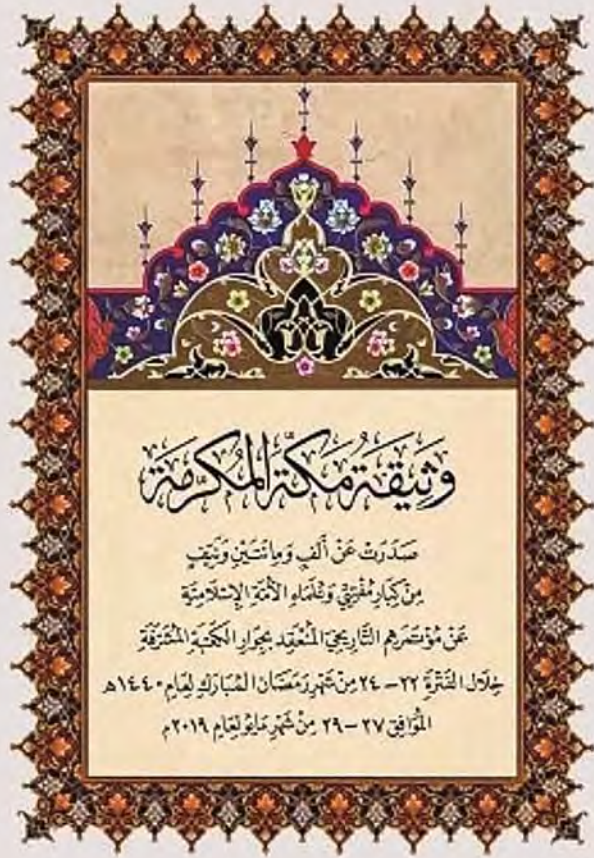 وَثِيقَة مَكَّة المُكَرَّمَة
صَدَرَتْ عَنْ أَلفٍ وَمِائَتَيْنِ وَنَيِّفٍ
مِنْ كِبَارِ مُفْتِيِّ وَعُلَمَاءِ الأُمَّةِ الإِسْلَامِيَّةِ
عَنْ مُؤْتَمَرِهِم التَّارِيخِيِّ المُنْعَقِدِ بِجِوَارِ الكَعْبَةِ المُشَرَّفَةِ
خِلَال الفَتْرَةِ ٢٢ – ٢٤ مِنْ شَهْرِ رَمَضَان المُبَارَكِ لِعَامِ ١٤٤٠هـ
المُوَافِق ٢٧ – ٢٩ مِنْ شَهْرِ مَايُو لِعَامِ ٢٠١٩م